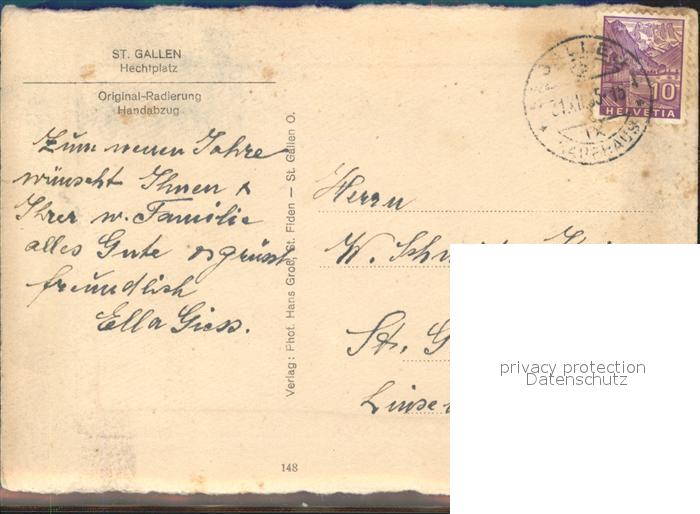 ST. GALLEN
Hechtplatz
Original-Radierung
Handabzug
Zum neuen Jahre
wünscht Ihnen &
Ihrer w. Familie
alles Gute & grüsst
freundlich
Ella Giess.
Verlag: Phot. Hans Groß, St. Fiden — St. Gallen O.
148
10
HELVETIA
Herrn
W.
St. G
Linse
privacy protection
Datenschutz